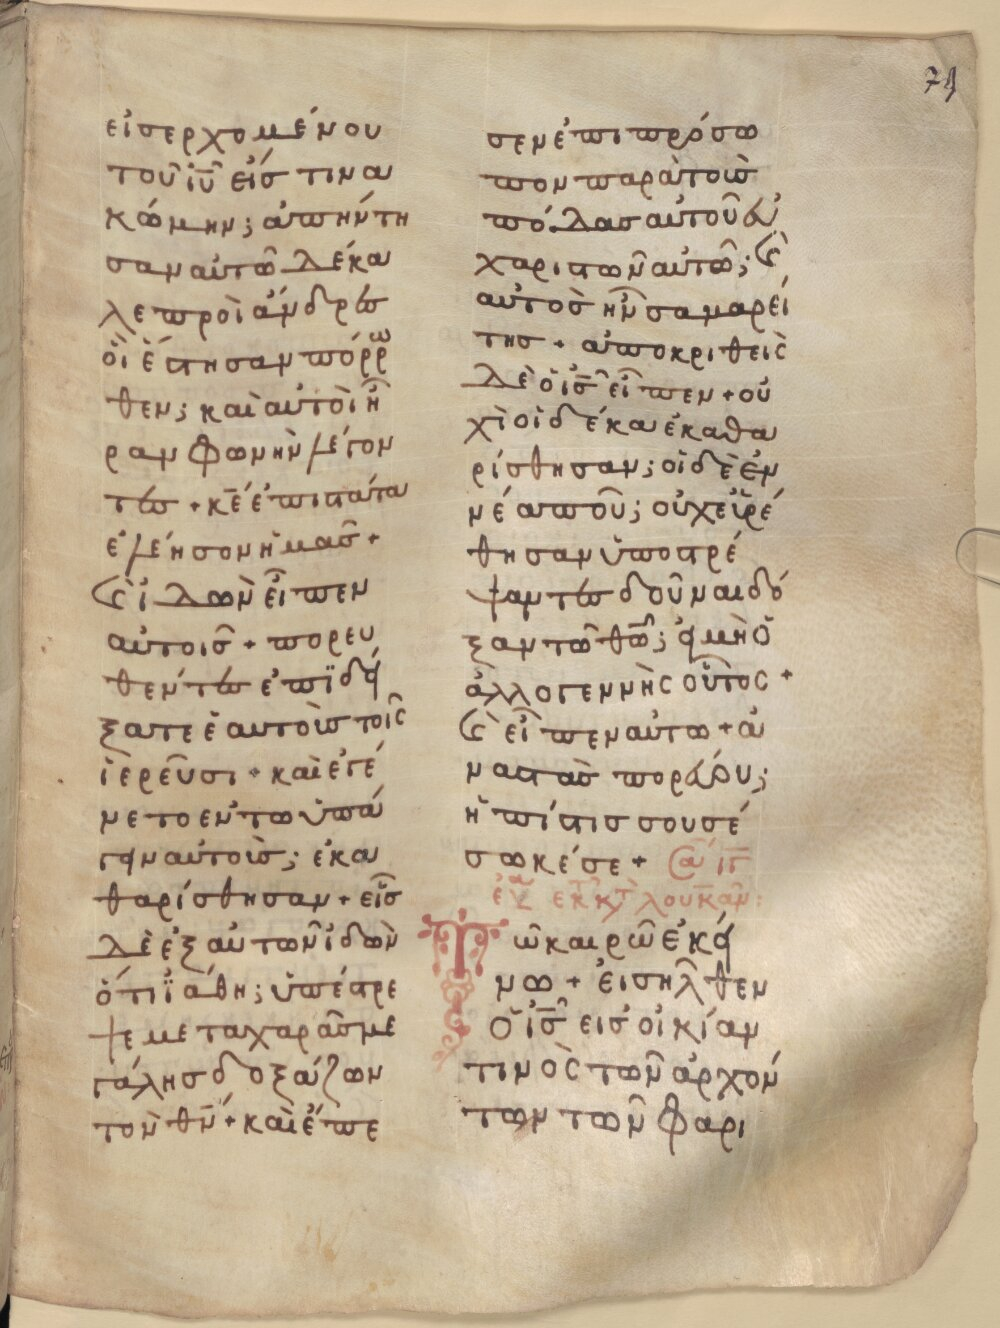 74
εἰσερχομένου
τοῦ ἰῦ εἴσ τινα
κώμην; ἀπήντη
σαν αὐτῶ δέκα
λεπροὶ ἄνδρεσ
ὁὶ ἔστησαν πόρρω
θεν; καὶ αὐτὸι ἦ
ραν φωνὴν λέγον
τεσ + κ̅ε̅ ἐπιστάτα
ἐλέησον ἡμασ +
Καὶ ἰδὼν εἶπεν
αὐτοισ + πορευ
θέντεσ ἐπιδεί
ξατε ἑαυτοὺσ τοῖς
ἱερεῦσι + καὶ ἐγέ
νετο εν τω ὑπά
γειν αὐτοὺσ; ἐκα
θαρίσθησαν + εἷσ
δὲ ἐξ αυτῶν ἰδὼν
ὅτι ϊάθη; ὑπέστρε
ψε μετα χαρᾶσ με
γάλησ δοξάζων
τὸν θ̅ν̅ + καὶ ἔπε
σεν ἐπι πρόσω
πον παρὰ τοὺσ
πόδασ αὐτοῦ εὐ
χαριστῶν αὐτῶ; Καὶ
αὐτὸσ ἦν σαμαρεί
τησ + ἀποκριθεὶς
δὲ ὁ ἰ̅σ̅ εἶπεν + οὐ
χὶ οἱ δέκα ἐκαθα
ρίσθησαν; οἱ δὲ ἐν
νέα ποῦ; οὐχ εὑρέ
θησαν ὑποστρέ
ψαντεσ δοῦναι δό
ξαν τῶ θῶ; εἰ μὴ ὁ
ἀλλογεννὴς οὗτος +
Καὶ εἶπεν αὐτω + ἀ
ναστὰσ πορεύου;
ἡ πίστισ σου σέ
σωκέ σε + Κυ ιΓ
ἐκ τ κατ λουκᾶν:
Τῶ καιρῶ ἐκεί
νω + ἐισῆλθεν
Ὁ ἰ̅σ̅ εισ οἰκίαν
τινὸς τῶν ἀρχόν
των τῶν φαρι